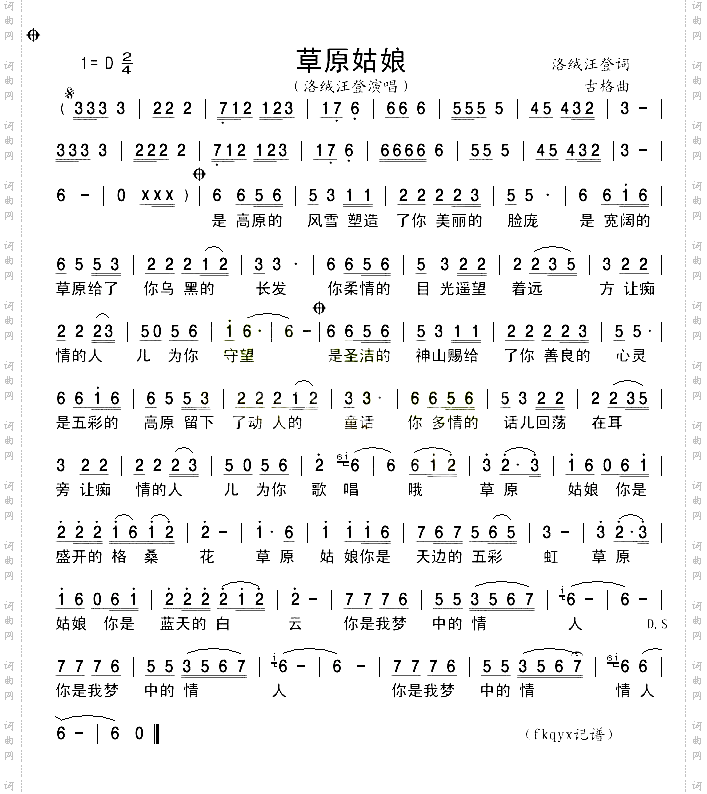 草原姑娘
1=D 2/4
洛绒汪登词
（洛绒汪登演唱）
古格曲
（ 333 3 | 222 2 | 712 123 | 17 6 | 666 6 | 555 5 | 45 432 | 3 － |
333 3 | 222 2 | 712 123 | 17 6 | 6666 6 | 55 5 | 45 432 | 3 － |
6 － | 0 xxx ）| 6 656 | 53 11 | 22 223 | 55 · | 6 616 |
是 高原的 风雪 塑造 了你 美丽的 脸庞 是 宽阔的
6553 | 22212 | 33 · | 6656 | 5 322 | 2235 | 3 22 |
草原给了 你乌 黑的 长发 你柔情的 目 光遥望 着远 方 让痴
2 2 23 | 5056 | 1 6 · | 6 － | 6656 | 5311 | 22223 | 55 · |
情的人 儿 为你 守望 是圣洁的 神山赐给 了你 善良的 心灵
6616 | 6553 | 22212 | 33 · | 6656 | 5322 | 2235 |
是五彩的 高原 留下 了动 人的 童话 你 多情的 话儿回荡 在耳
3 22 | 2223 | 5056 | 2 6i 6 | 6 612 | 3 2·3 | 16061 |
旁 让痴 情的人 儿 为你 歌 唱 哦 草 原 姑娘 你是
2221612 | 2 － | 1·6 | 1 116 | 767565 | 3 － | 3 2·3 |
盛开的 格 桑 花 草 原 姑 娘你是 天边的 五彩 虹 草 原
16061 | 222212 | 2 － | 7776 | 553567 | i6 － | 6 － |
姑娘 你是 蓝天的 白 云 你是我梦 中的 情 人 D.S
7776 | 553567 | i6 － | 6 － | 7776 | 553567 | 6i6 |
你是我梦 中的 情 人 你是我梦 中的 情 情人
6 － | 6 0
（fkqyx记谱）
词曲网